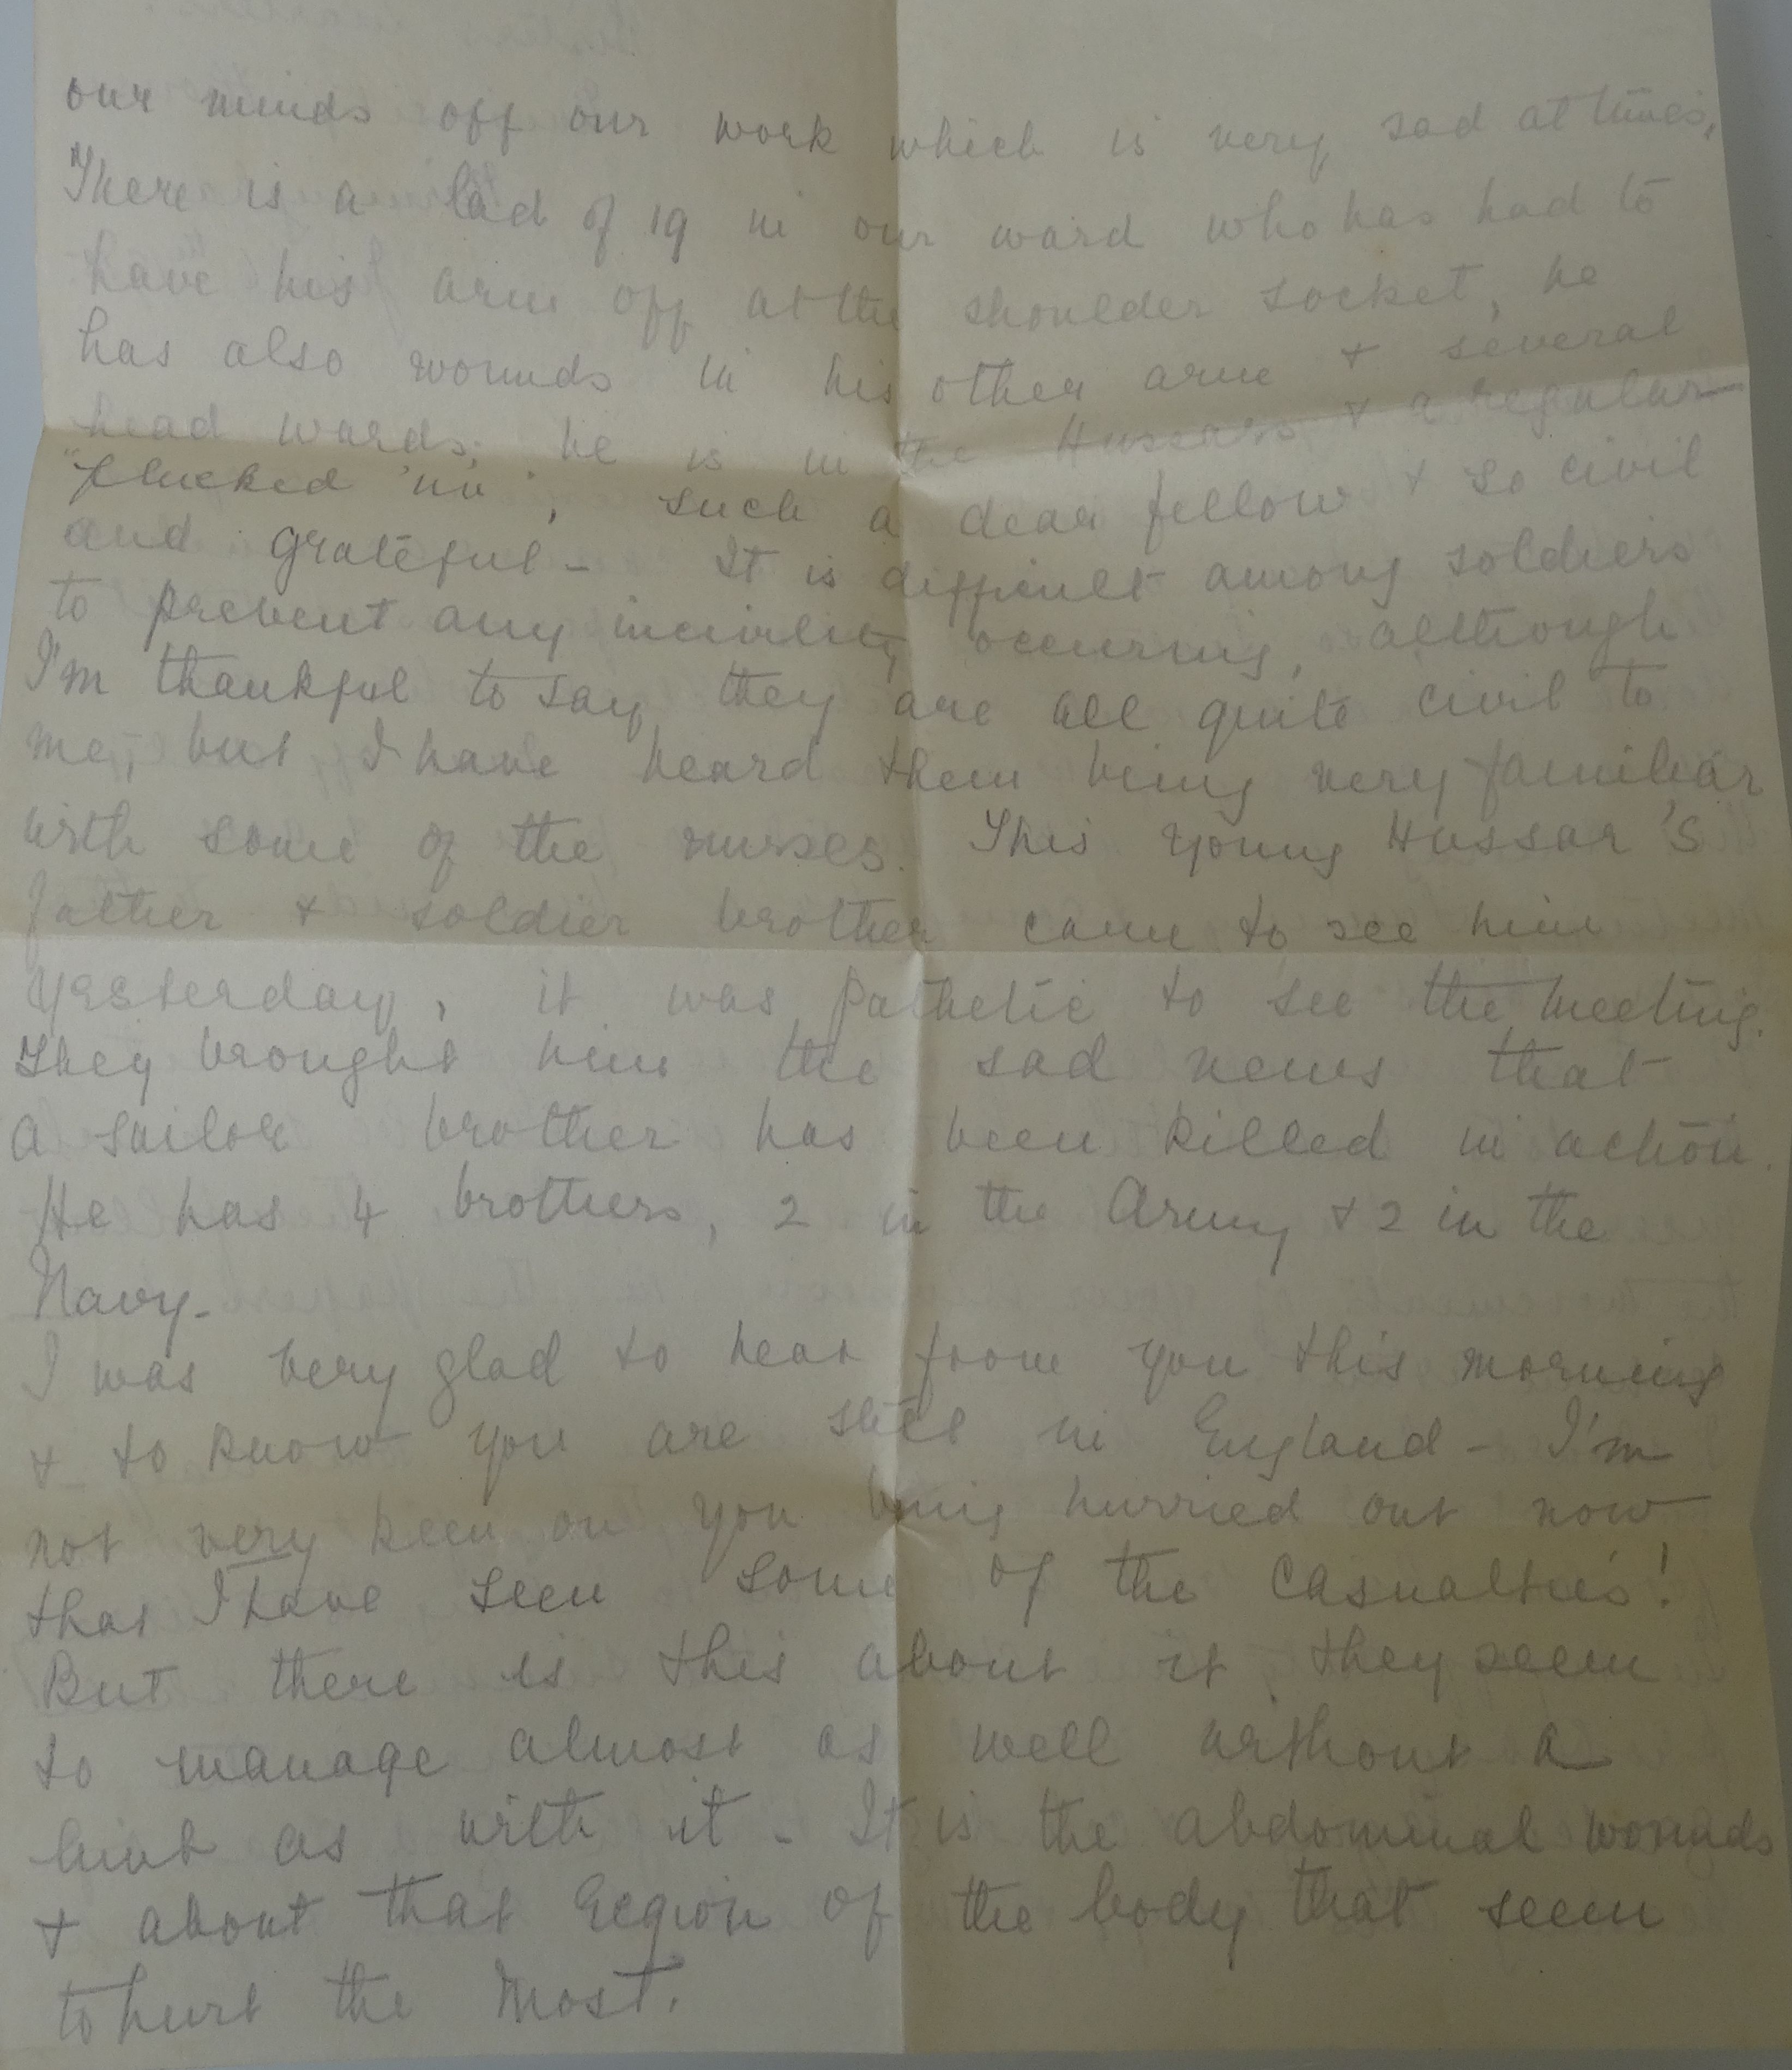 our minds off our work which is very sad at times.
There is a lad of 19 in our ward who has had to
have his arm off at the shoulder socket, he
has also wounds in his other arm & several
head wards; he is in the Hussars & a regular
"plucked 'un", such a dear fellow & so civil
and grateful - It is difficult among soldiers
to prevent any incivility occurring, although
I'm thankful to say they are all quite civil to
me, but I have heard them being very familiar
with some of the nurses. This young Hussar's
father & soldier brother came to see him
yesterday, it was pathetic to see the meeting.
They brought him the sad news that
a sailor brother has been killed in action.
He has 4 brothers, 2 in the Army & 2 in the
Navy -
I was very glad to hear from you this morning
& to know you are still in England - I'm
not very keen on you being hurried out now
that I have seen some of the casualties!
But there is this about it they seem
to manage almost as well without a
limb as with it - It is the abdominal wounds
& about that region of the body that seem
to hurt the most.